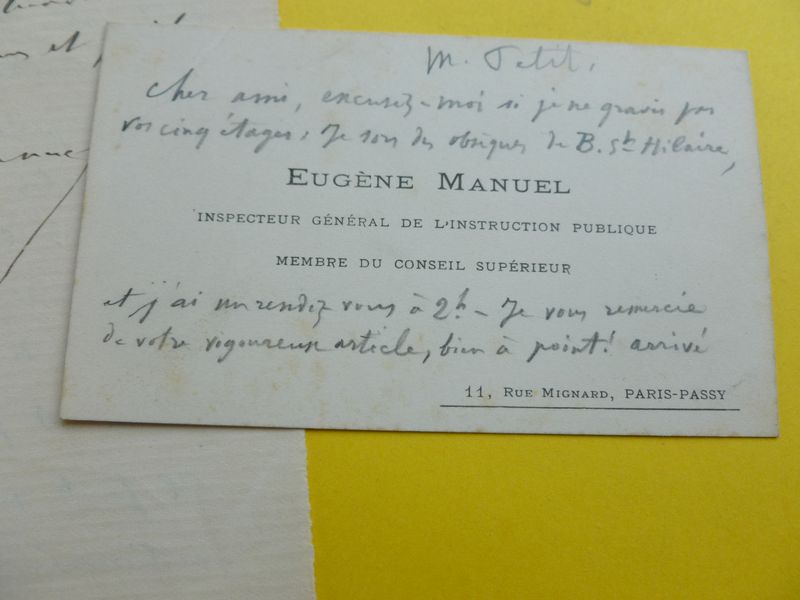 M. Petit.
Cher ami, excusez-moi si je ne gravis pas
vos cinq étages. Je sors des obsèques de B. St Hilaire,
EUGÈNE MANUEL
INSPECTEUR GÉNÉRAL DE L'INSTRUCTION PUBLIQUE
MEMBRE DU CONSEIL SUPÉRIEUR
et j'ai un rendez vous à 2h – Je vous remercie
de votre vigoureux article, bien à point! arrivé
11, RUE MIGNARD, PARIS-PASSY
et